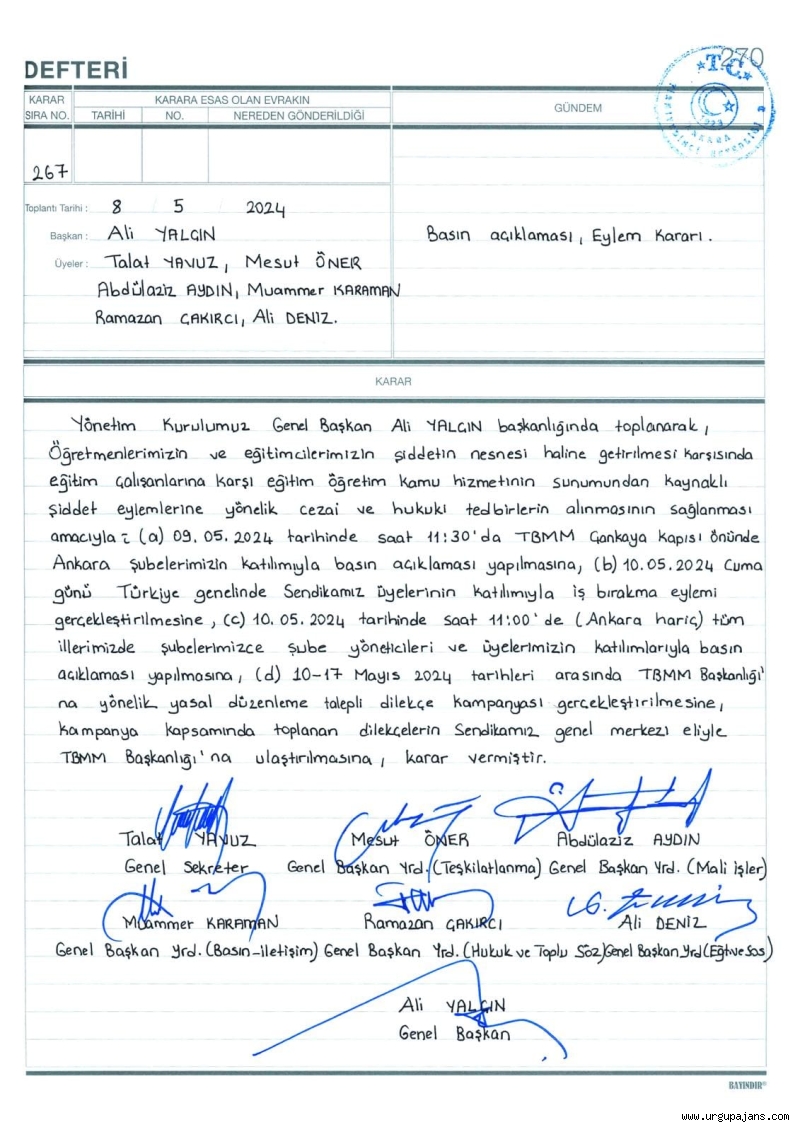 270
DEFTERİ
T.C.
KARAR SIRA NO.
KARARA ESAS OLAN EVRAKIN
TARİHİ NO. NEREDEN GÖNDERİLDİĞİ
GÜNDEM
267
Toplantı Tarihi : 8 / 5 / 2024
Başkan : Ali YALÇIN
Üyeler : Talat YAVUZ, Mesut ÖNER
Abdülaziz AYDIN, Muammer KARAMAN
Ramazan ÇAKIRCI, Ali DENİZ.
Basın açıklaması, Eylem Kararı.
KARAR
Yönetim Kurulumuz Genel Başkan Ali YALÇIN başkanlığında toplanarak,
Öğretmenlerimizin ve eğitimcilerimizin şiddetin nesnesi haline getirilmesi karşısında
eğitim çalışanlarına karşı eğitim öğretim kamu hizmetinin sunumundan kaynaklı
şiddet eylemlerine yönelik cezai ve hukuki tedbirlerin alınmasının sağlanması
amacıyla : (a) 09.05.2024 tarihinde saat 11:30'da TBMM Çankaya kapısı önünde
Ankara şubelerimizin katılımıyla basın açıklaması yapılmasına, (b) 10.05.2024 Cuma
günü Türkiye genelinde Sendikamız üyelerinin katılımıyla iş bırakma eylemi
gerçekleştirilmesine, (c) 10.05.2024 tarihinde saat 11:00'de (Ankara hariç) tüm
illerimizde şubelerimizce şube yöneticileri ve üyelerimizin katılımlarıyla basın
açıklaması yapılmasına, (d) 10-17 Mayıs 2024 tarihleri arasında TBMM Başkanlığı'
na yönelik yasal düzenleme talepli dilekçe kampanyası gerçekleştirilmesine,
kampanya kapsamında toplanan dilekçelerin Sendikamız genel merkezi eliyle
TBMM Başkanlığı'na ulaştırılmasına, karar vermiştir.
Talat YAVUZ Mesut ÖNER Abdülaziz AYDIN
Genel Sekreter Genel Başkan Yrd. (Teşkilatlanma) Genel Başkan Yrd. (Mali işler)
Muammer KARAMAN Ramazan ÇAKIRCI Ali DENİZ
Genel Başkan Yrd. (Basın-iletişim) Genel Başkan Yrd. (Hukuk ve Toplu Söz) Genel Başkan Yrd (Eğt ve Sos)
Ali YALÇIN
Genel Başkan
BAYINDIR
www.urgupajans.com